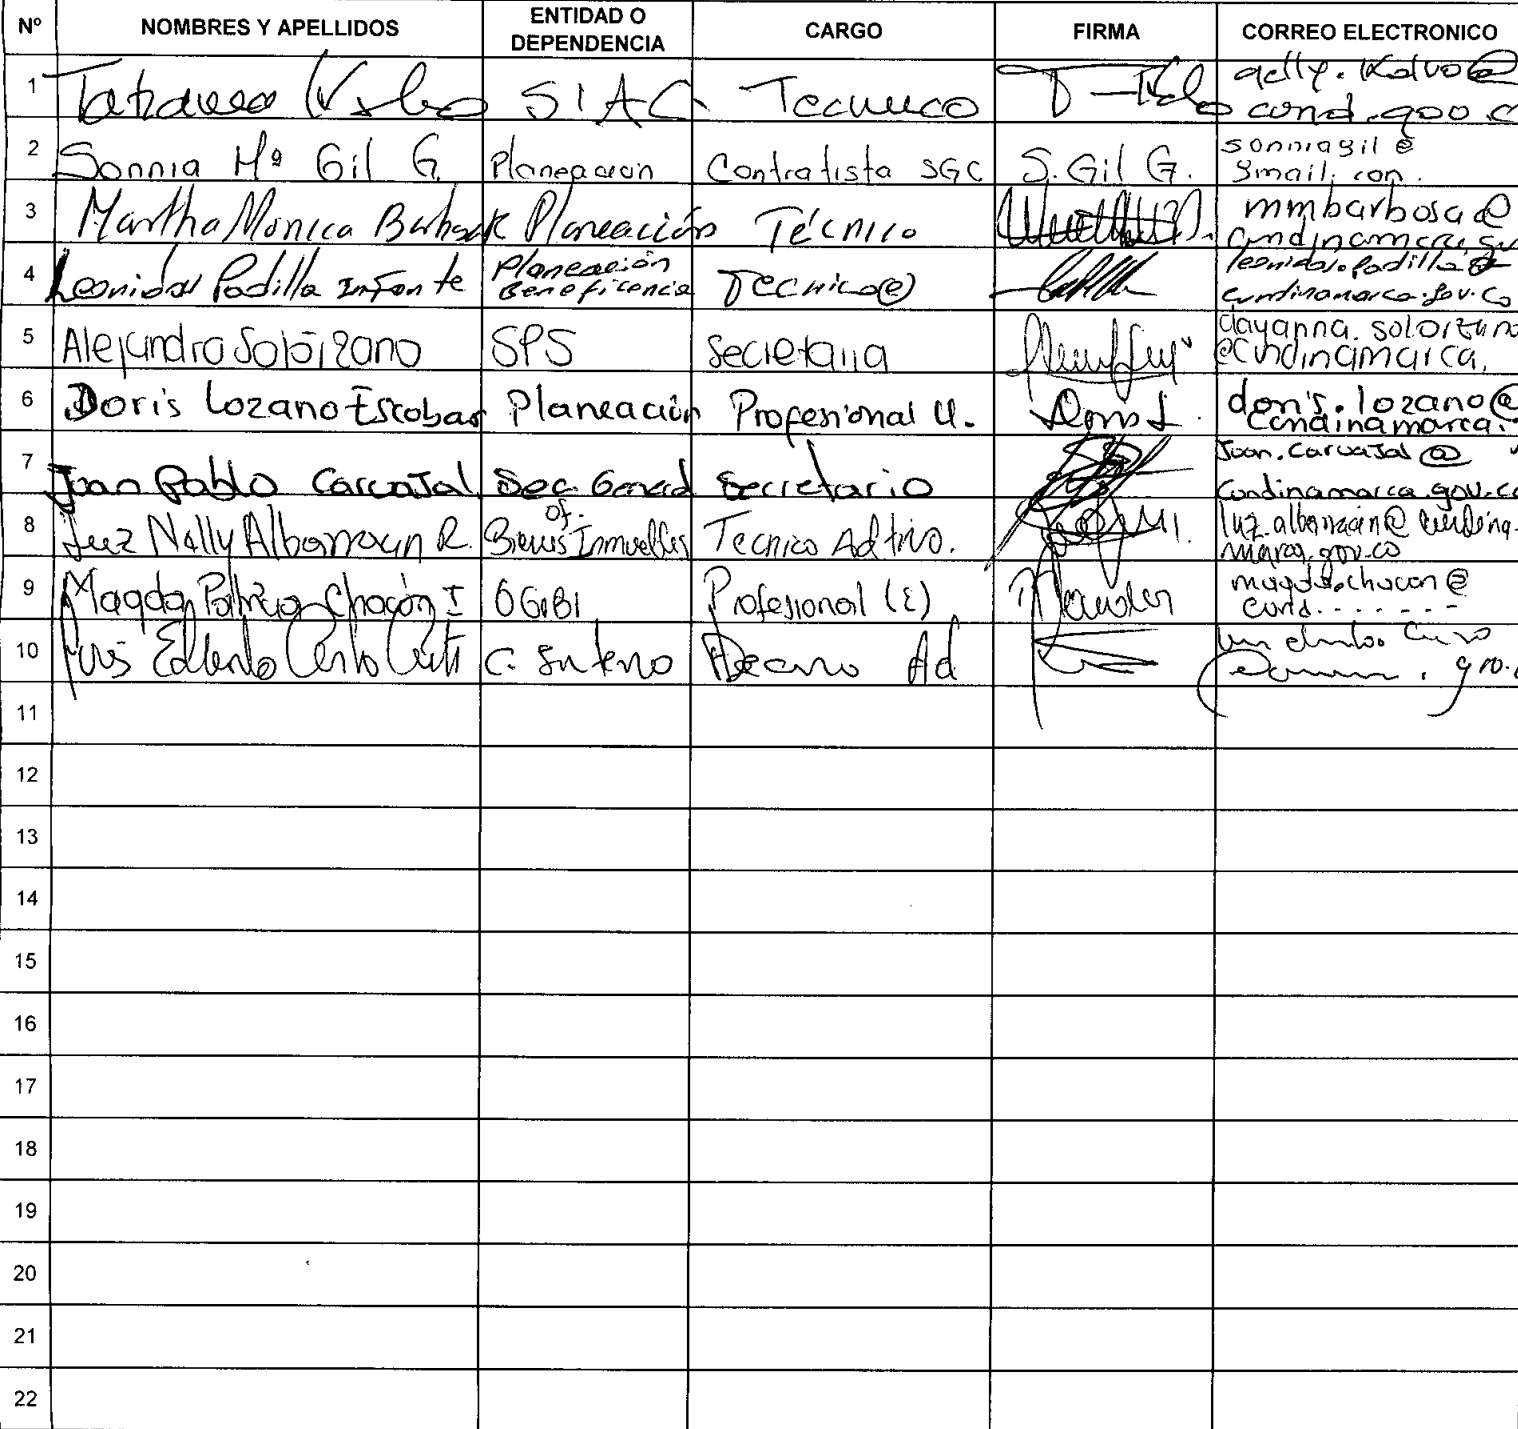 Nº NOMBRES Y APELLIDOS ENTIDAD O DEPENDENCIA CARGO FIRMA CORREO ELECTRONICO
1 SIAC Tecnico
2 Sonnia Mª Gil G. Planeación Contratista SGC S. Gil G. sonniagil@ gmail.com.
3 Martha Monica Planeación Técnico mmbarbosa@
4 Leonidas Padilla Infante Planeación Beneficencia Tecnico(e) leonidas.padilla@ cundinamarca.gov.co
5 Alejandra Solórzano SPS Secretaria dayanna.solorzano @cundinamarca.
6 Doris Lozano Escobar Planeación Profesional U. Doris L doris.lozano@ Cundinamarca.
7 Juan Pablo Carvajal Sec. General Secretario Juan.Carvajal@ cundinamarca.gov.co
8 Luz Nelly Albarracin R. Of. Bienes Inmuebles Tecnico Adtivo. luz.albarracin@ cundina- marca.gov.co
9 Magda Patricia Chacón I OGIBI Profesional (E) magda.chacon@ cund.......
10 Luis C. Interno Ad
11
12
13
14
15
16
17
18
19
20
21
22